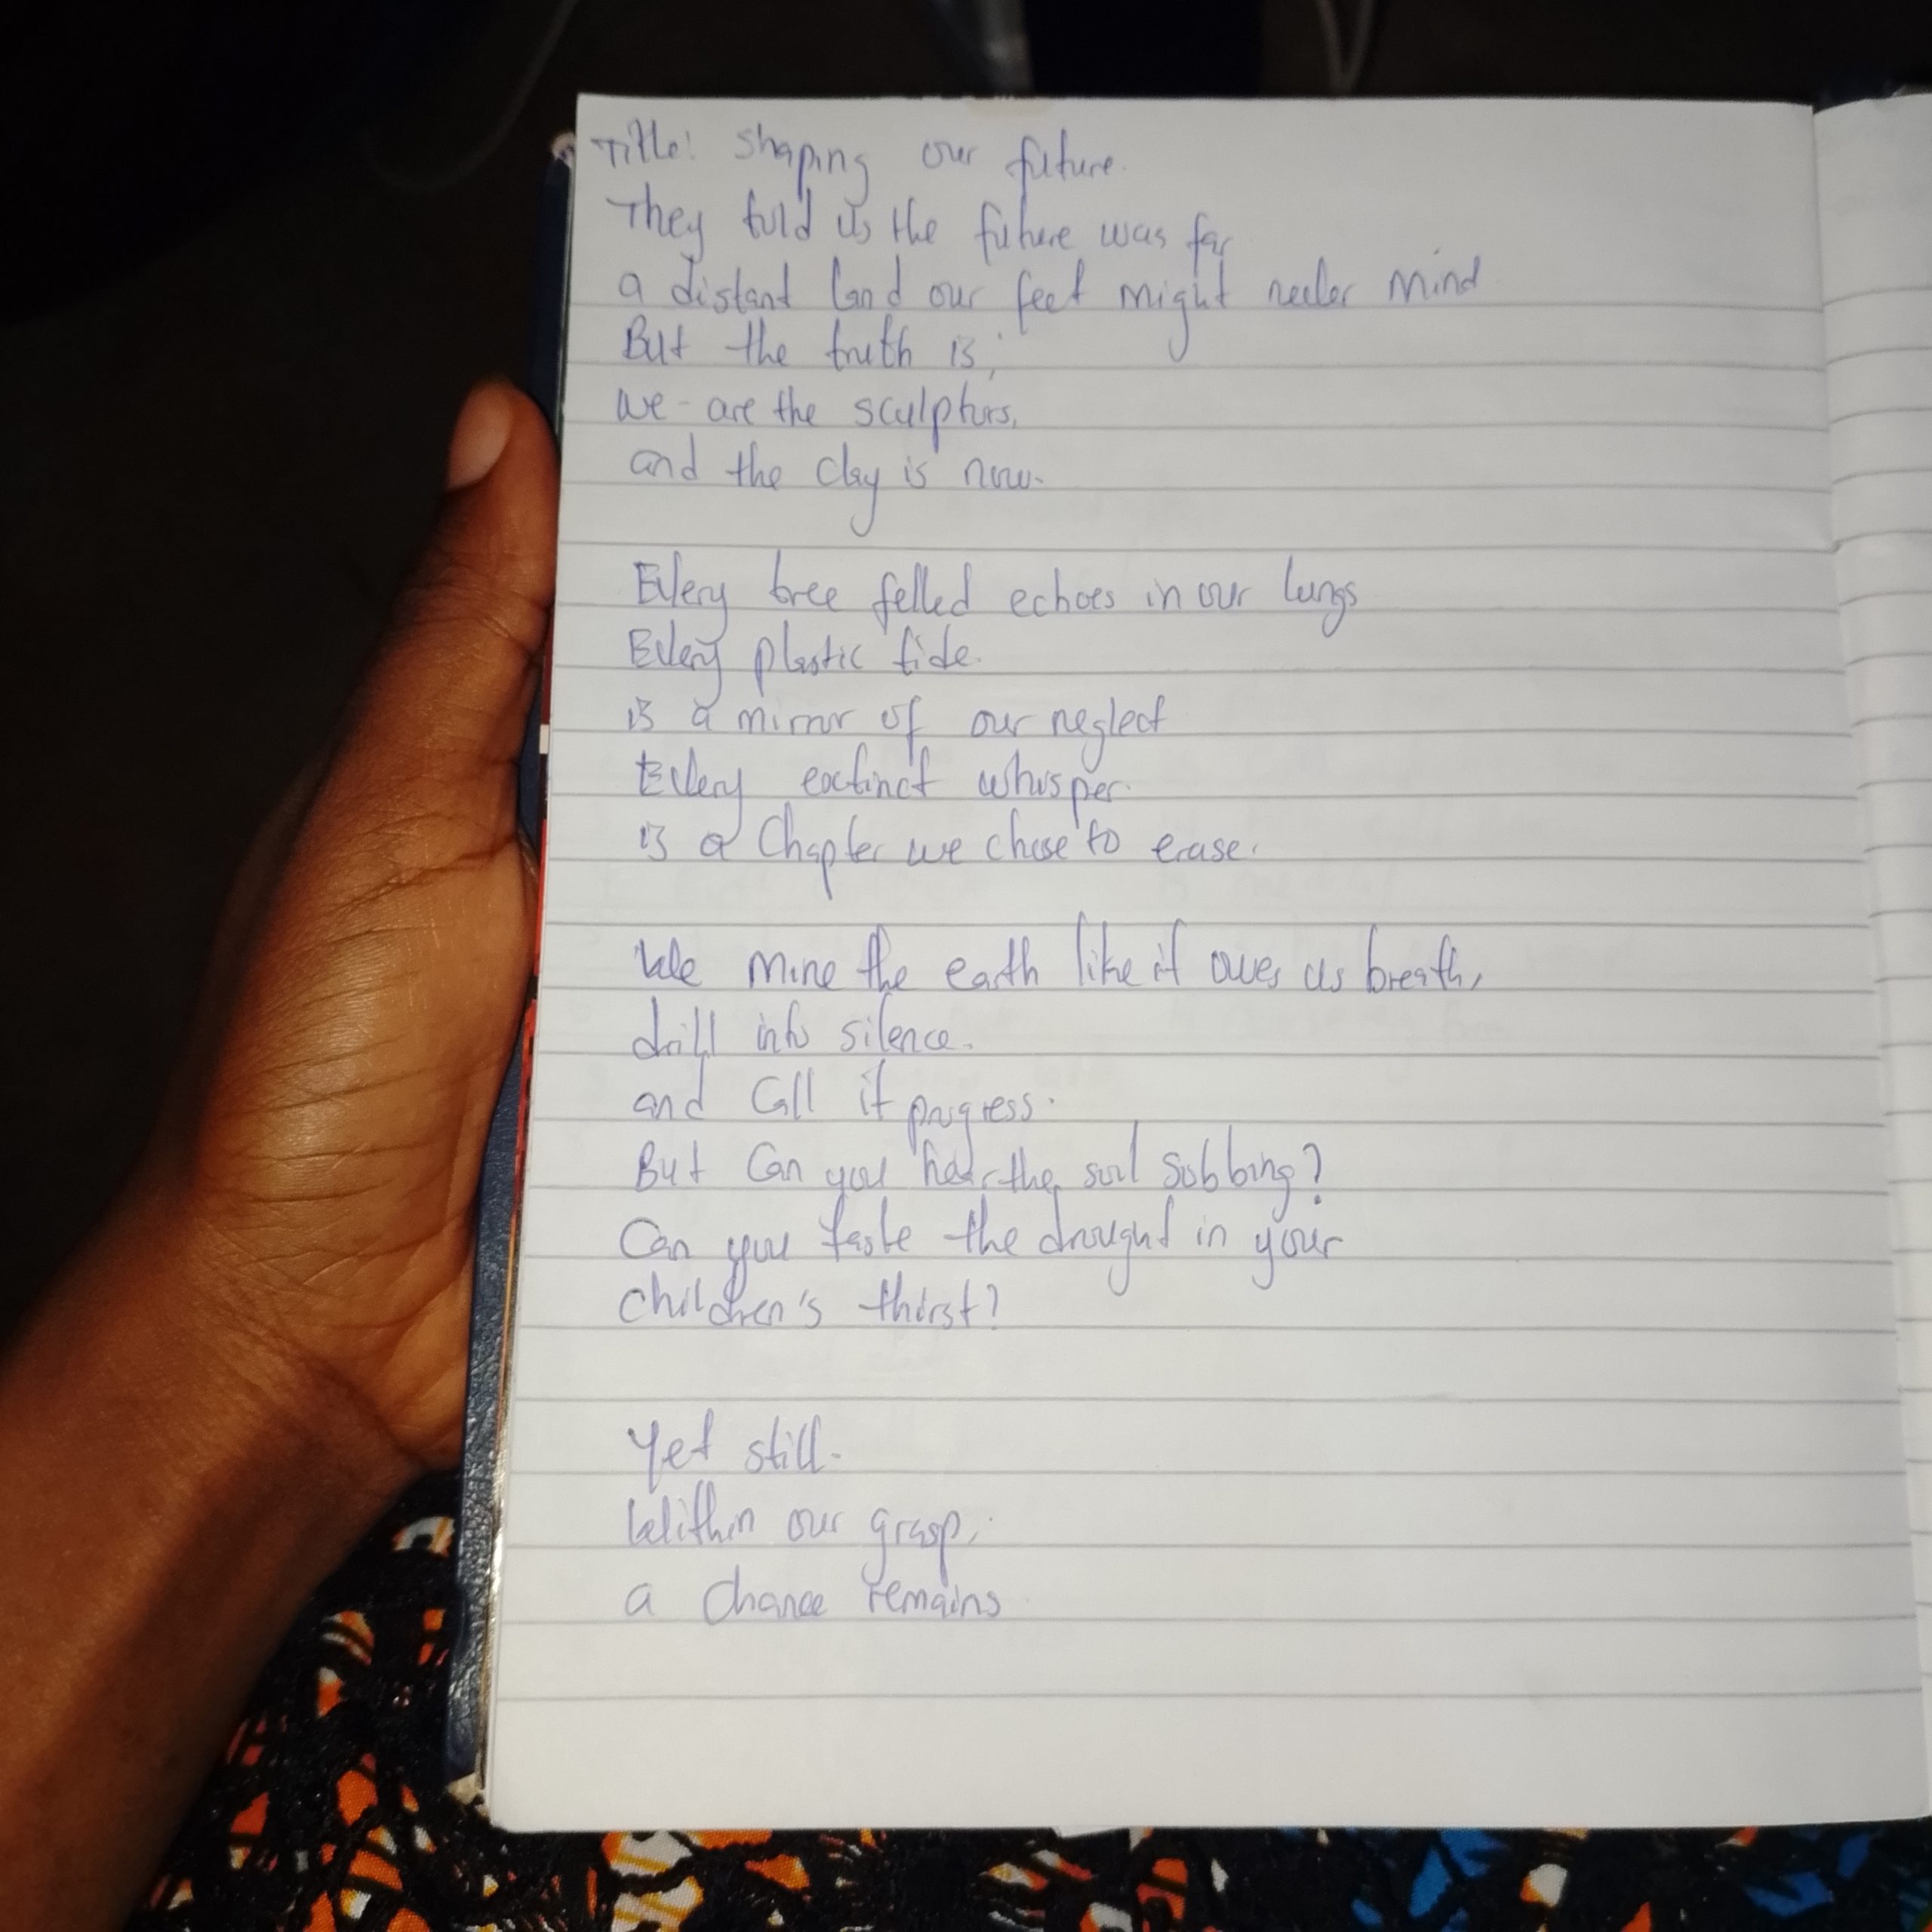 Title: Shaping our future.
They told us the future was far
a distant land our feet might never mind
But the truth is,
we are the sculptors,
and the clay is now.
Every tree felled echoes in our lungs
Every plastic tide
is a mirror of our neglect
Every extinct whisper
is a Chapter we chose to erase.
We mine the earth like it owes us breath,
drill into silence.
and call it progress.
But Can you hear the soil sobbing?
Can you taste the drought in your
children's thirst?
Yet still.
Within our grasp,
a chance remains